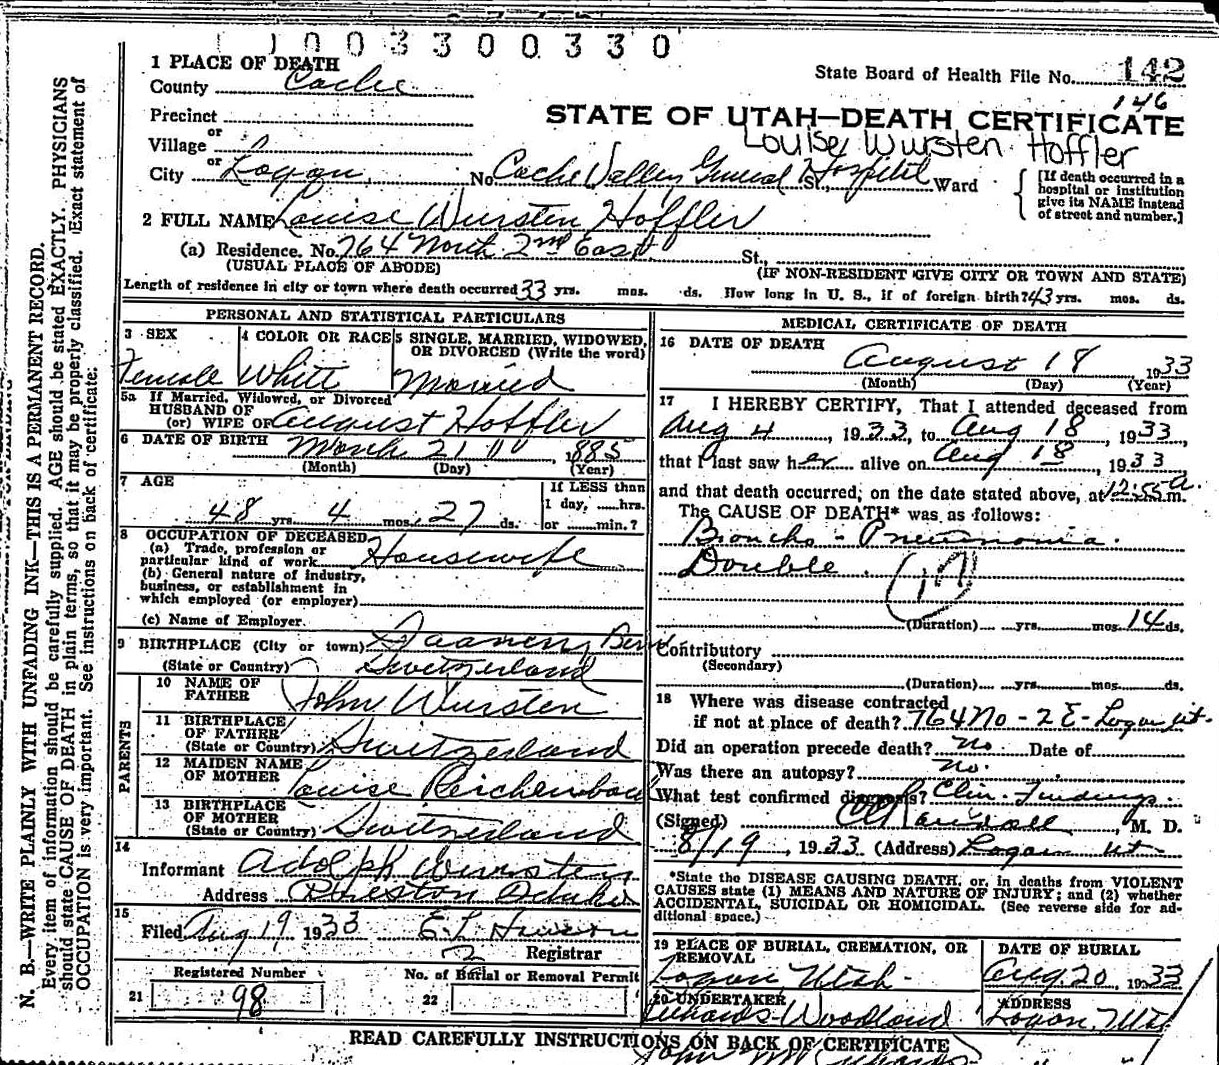 1003300330
1 PLACE OF DEATH
State Board of Health File No. 142
County Cache
146
Precinct
STATE OF UTAH—DEATH CERTIFICATE
or
Village
Louise Wursten Hoffler
or
City Logan, No. Cache Valley General Hospital St., Ward
[If death occurred in a hospital or institution give its NAME instead of street and number.]
2 FULL NAME Louise Wursten Hoffler
(a) Residence. No. 764 North 2nd East St.,
(USUAL PLACE OF ABODE) (IF NON-RESIDENT GIVE CITY OR TOWN AND STATE)
Length of residence in city or town where death occurred 33 yrs. mos. ds. How long in U. S., if of foreign birth? 43 yrs. mos. ds.
PERSONAL AND STATISTICAL PARTICULARS
3 SEX
Female
4 COLOR OR RACE
White
5 SINGLE, MARRIED, WIDOWED, OR DIVORCED (Write the word)
Married
5a If Married, Widowed, or Divorced
HUSBAND OF
(or) WIFE OF August Hoffler
6 DATE OF BIRTH March 21, 1885
(Month) (Day) (Year)
7 AGE
48 yrs. 4 mos. 27 ds.
If LESS than
1 day, ......hrs.
or ......min.?
8 OCCUPATION OF DECEASED
(a) Trade, profession or
particular kind of work Housewife
(b) General nature of industry,
business, or establishment in
which employed (or employer)
(c) Name of Employer
9 BIRTHPLACE (City or town) Saanen, Bern
(State or Country) Switzerland
PARENTS
10 NAME OF FATHER John Wursten
11 BIRTHPLACE OF FATHER
(State or Country) Switzerland
12 MAIDEN NAME OF MOTHER Louise Reichenbach
13 BIRTHPLACE OF MOTHER
(State or Country) Switzerland
14
Informant Adolph Wursten
Address Preston Idaho
15
Filed Aug 19 1933 E. L.
2 Registrar
Registered Number
21 98
No. of Burial or Removal Permit
22
MEDICAL CERTIFICATE OF DEATH
16 DATE OF DEATH
August 18 1933
(Month) (Day) (Year)
17 I HEREBY CERTIFY, That I attended deceased from
Aug 4, 1933, to Aug 18, 1933
that I last saw her alive on Aug 18, 1933
and that death occurred, on the date stated above, at 12:55 a.m.
The CAUSE OF DEATH* was as follows:
Broncho-Pneumonia.
Double.
(Duration) yrs. mos. 14 ds.
Contributory
(Secondary)
(Duration) yrs. mos. ds.
18 Where was disease contracted
if not at place of death? 764 No - 2 E - Logan Ut.
Did an operation precede death? no Date of
Was there an autopsy? no.
What test confirmed diagnosis? Clin. Findings.
(Signed) , M. D.
8/19, 1933 (Address) Logan Ut
*State the DISEASE CAUSING DEATH, or, in deaths from VIOLENT
CAUSES state (1) MEANS AND NATURE OF INJURY; and (2) whether
ACCIDENTAL, SUICIDAL OR HOMICIDAL. (See reverse side for ad-
ditional space.)
19 PLACE OF BURIAL, CREMATION, OR REMOVAL
Logan Utah
DATE OF BURIAL
Aug. 20, 1933
20 UNDERTAKER
Woodland
ADDRESS
Logan, Utah
READ CAREFULLY INSTRUCTIONS ON BACK OF CERTIFICATE
John
N. B.—WRITE PLAINLY WITH UNFADING INK—THIS IS A PERMANENT RECORD.
Every item of information should be carefully supplied. AGE should be stated EXACTLY. PHYSICIANS
should state CAUSE OF DEATH in plain terms, so that it may be properly classified. Exact statement of
OCCUPATION is very important. See instructions on back of certificate.